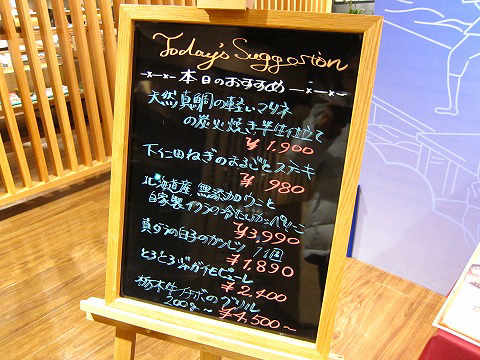 Today's Suggestion
本日のおすすめ
天然真鯛の軽いマリネ
の炭火焼き半生仕立て
¥1,900
下仁田ねぎのまるごとステーキ
¥980
北海道産 無添加ウニと
自家製イクラの冷たいカッペリーニ
¥3,990
真ダラの白子のカツレツ 1個
¥1,890
とろとろ
ピューレ
¥2,400
栃木牛イチボのグリル
200g~
¥4,500~